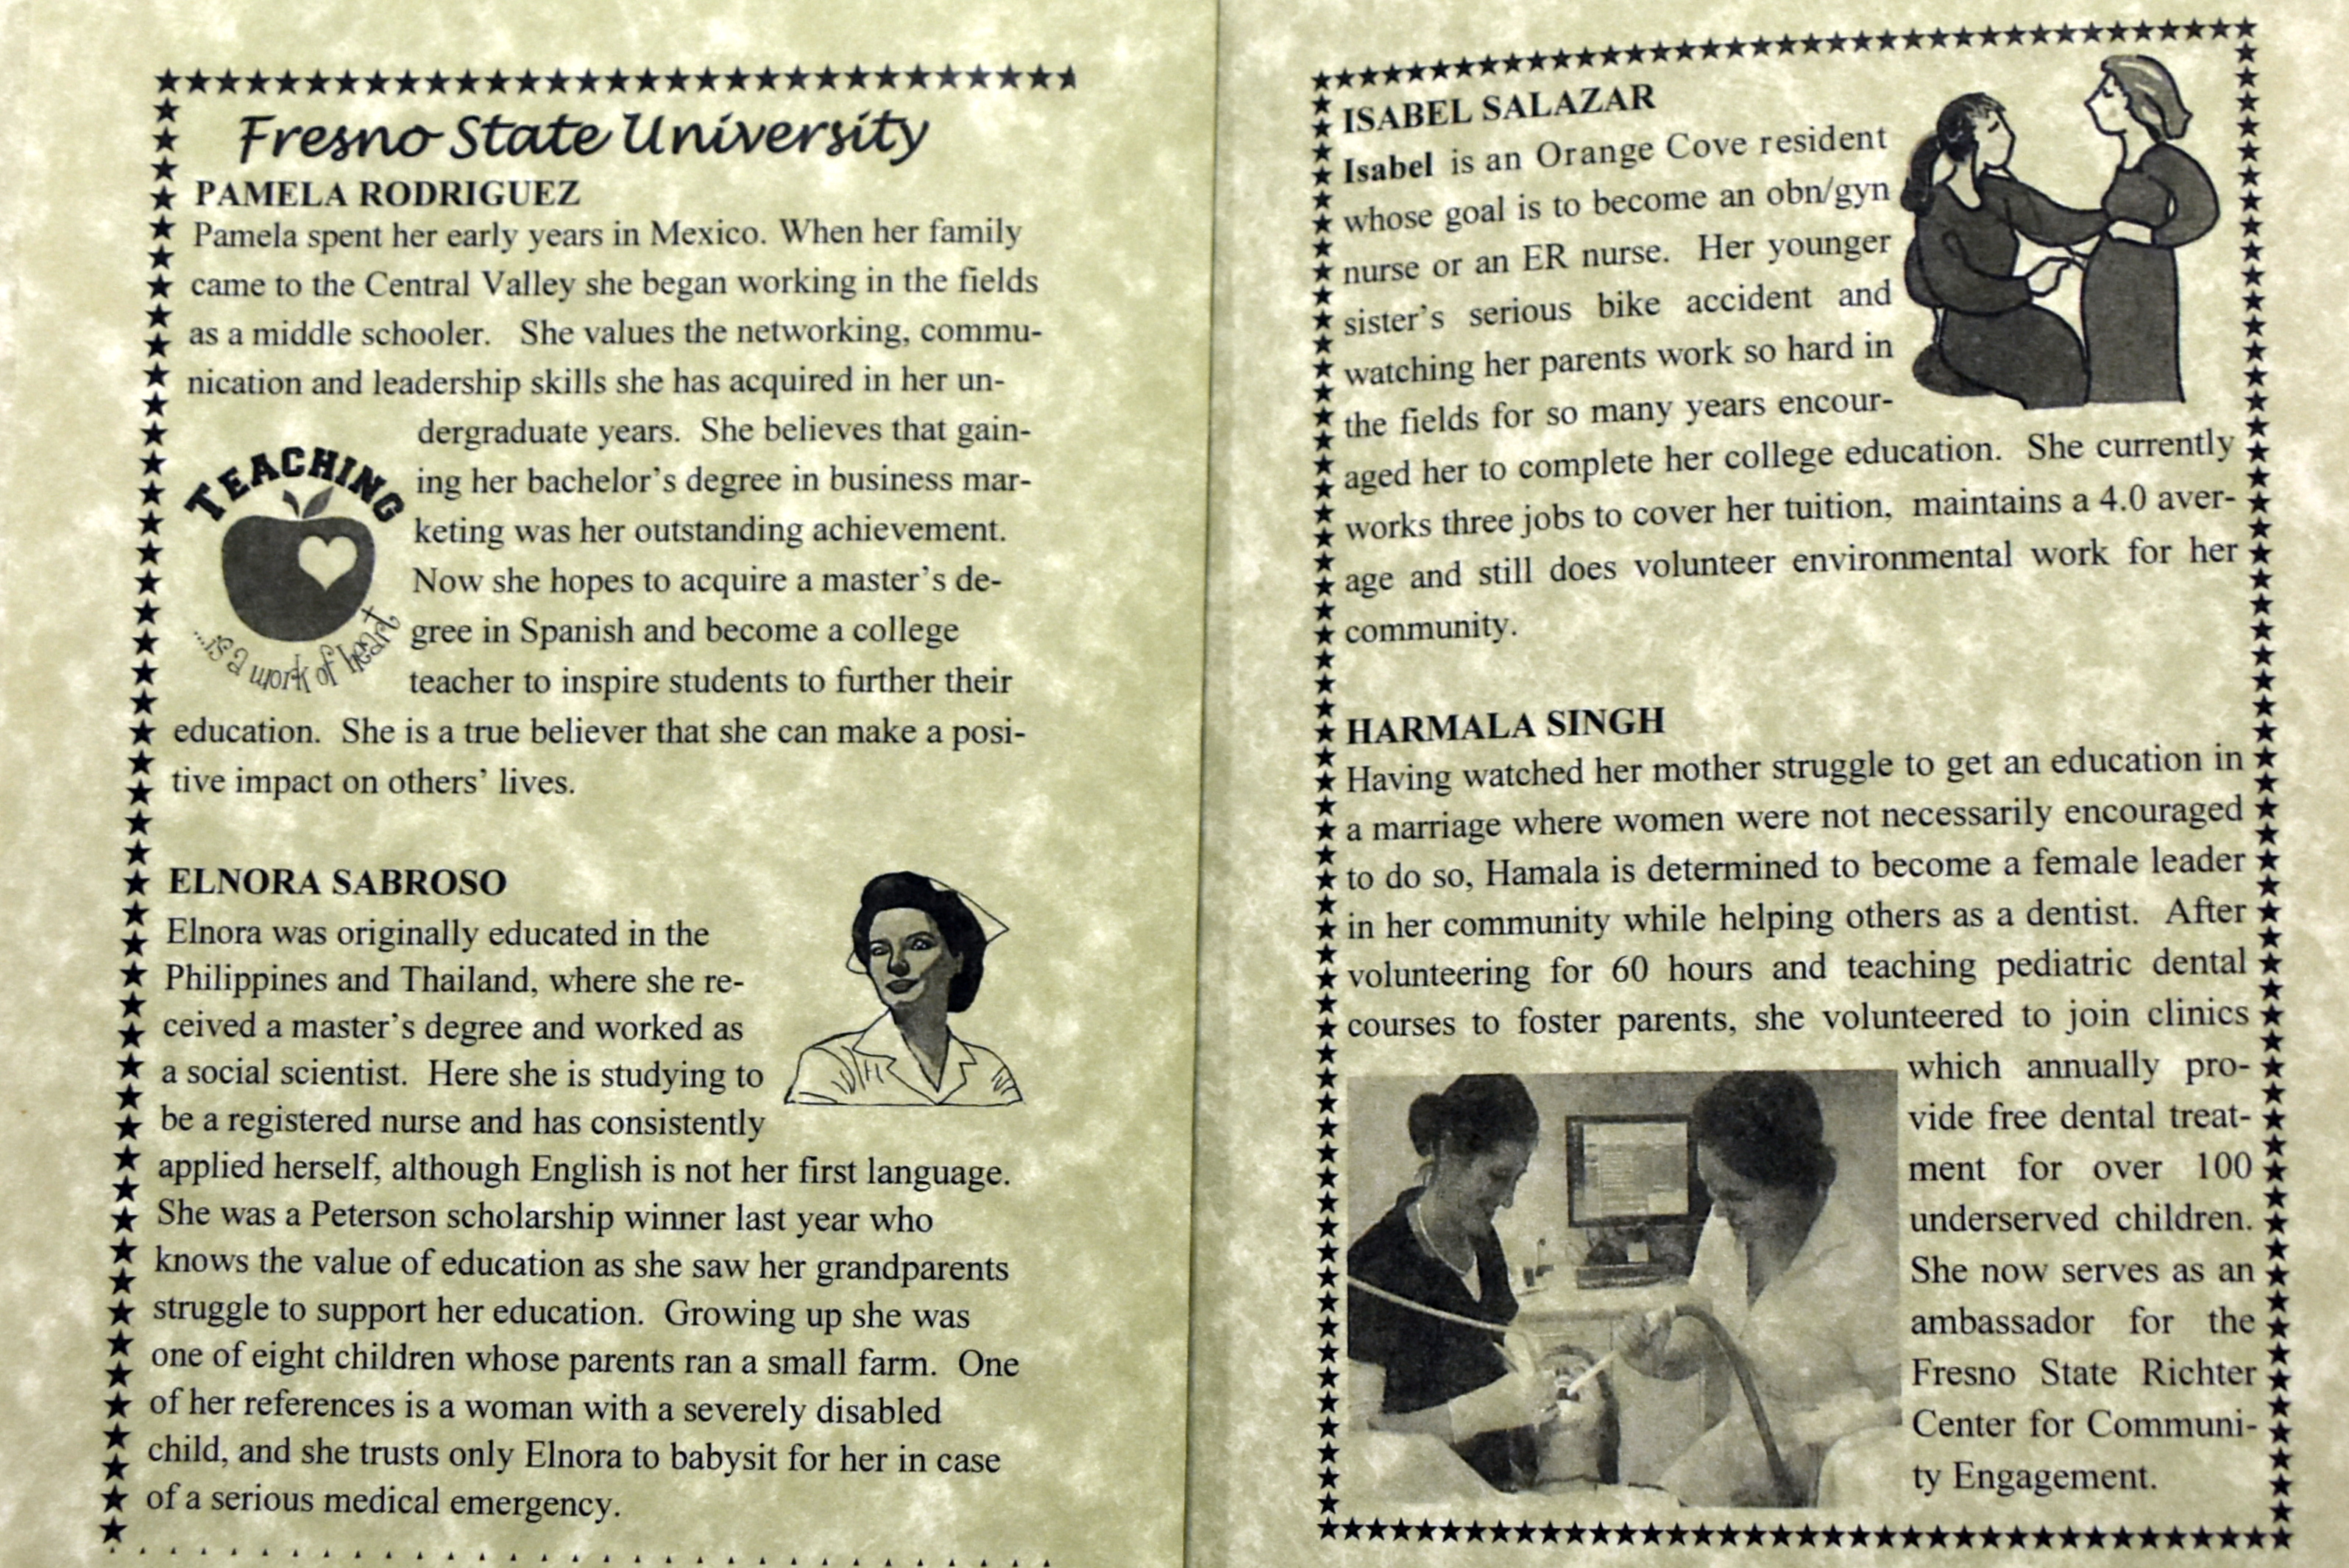 Fresno State University
PAMELA RODRIGUEZ
Pamela spent her early years in Mexico. When her family
came to the Central Valley she began working in the fields
as a middle schooler. She values the networking, commu-
nication and leadership skills she has acquired in her un-
dergraduate years. She believes that gain-
ing her bachelor's degree in business mar-
keting was her outstanding achievement.
Now she hopes to acquire a master's de-
gree in Spanish and become a college
teacher to inspire students to further their
education. She is a true believer that she can make a posi-
tive impact on others' lives.
TEACHING
...is a work of heart
ELNORA SABROSO
Elnora was originally educated in the
Philippines and Thailand, where she re-
ceived a master's degree and worked as
a social scientist. Here she is studying to
be a registered nurse and has consistently
applied herself, although English is not her first language.
She was a Peterson scholarship winner last year who
knows the value of education as she saw her grandparents
struggle to support her education. Growing up she was
one of eight children whose parents ran a small farm. One
of her references is a woman with a severely disabled
child, and she trusts only Elnora to babysit for her in case
of a serious medical emergency.
ISABEL SALAZAR
Isabel is an Orange Cove resident
whose goal is to become an obn/gyn
nurse or an ER nurse. Her younger
sister's serious bike accident and
watching her parents work so hard in
the fields for so many years encour-
aged her to complete her college education. She currently
works three jobs to cover her tuition, maintains a 4.0 aver-
age and still does volunteer environmental work for her
community.
HARMALA SINGH
Having watched her mother struggle to get an education in
a marriage where women were not necessarily encouraged
to do so, Hamala is determined to become a female leader
in her community while helping others as a dentist. After
volunteering for 60 hours and teaching pediatric dental
courses to foster parents, she volunteered to join clinics
which annually pro-
vide free dental treat-
ment for over 100
underserved children.
She now serves as an
ambassador for the
Fresno State Richter
Center for Communi-
ty Engagement.